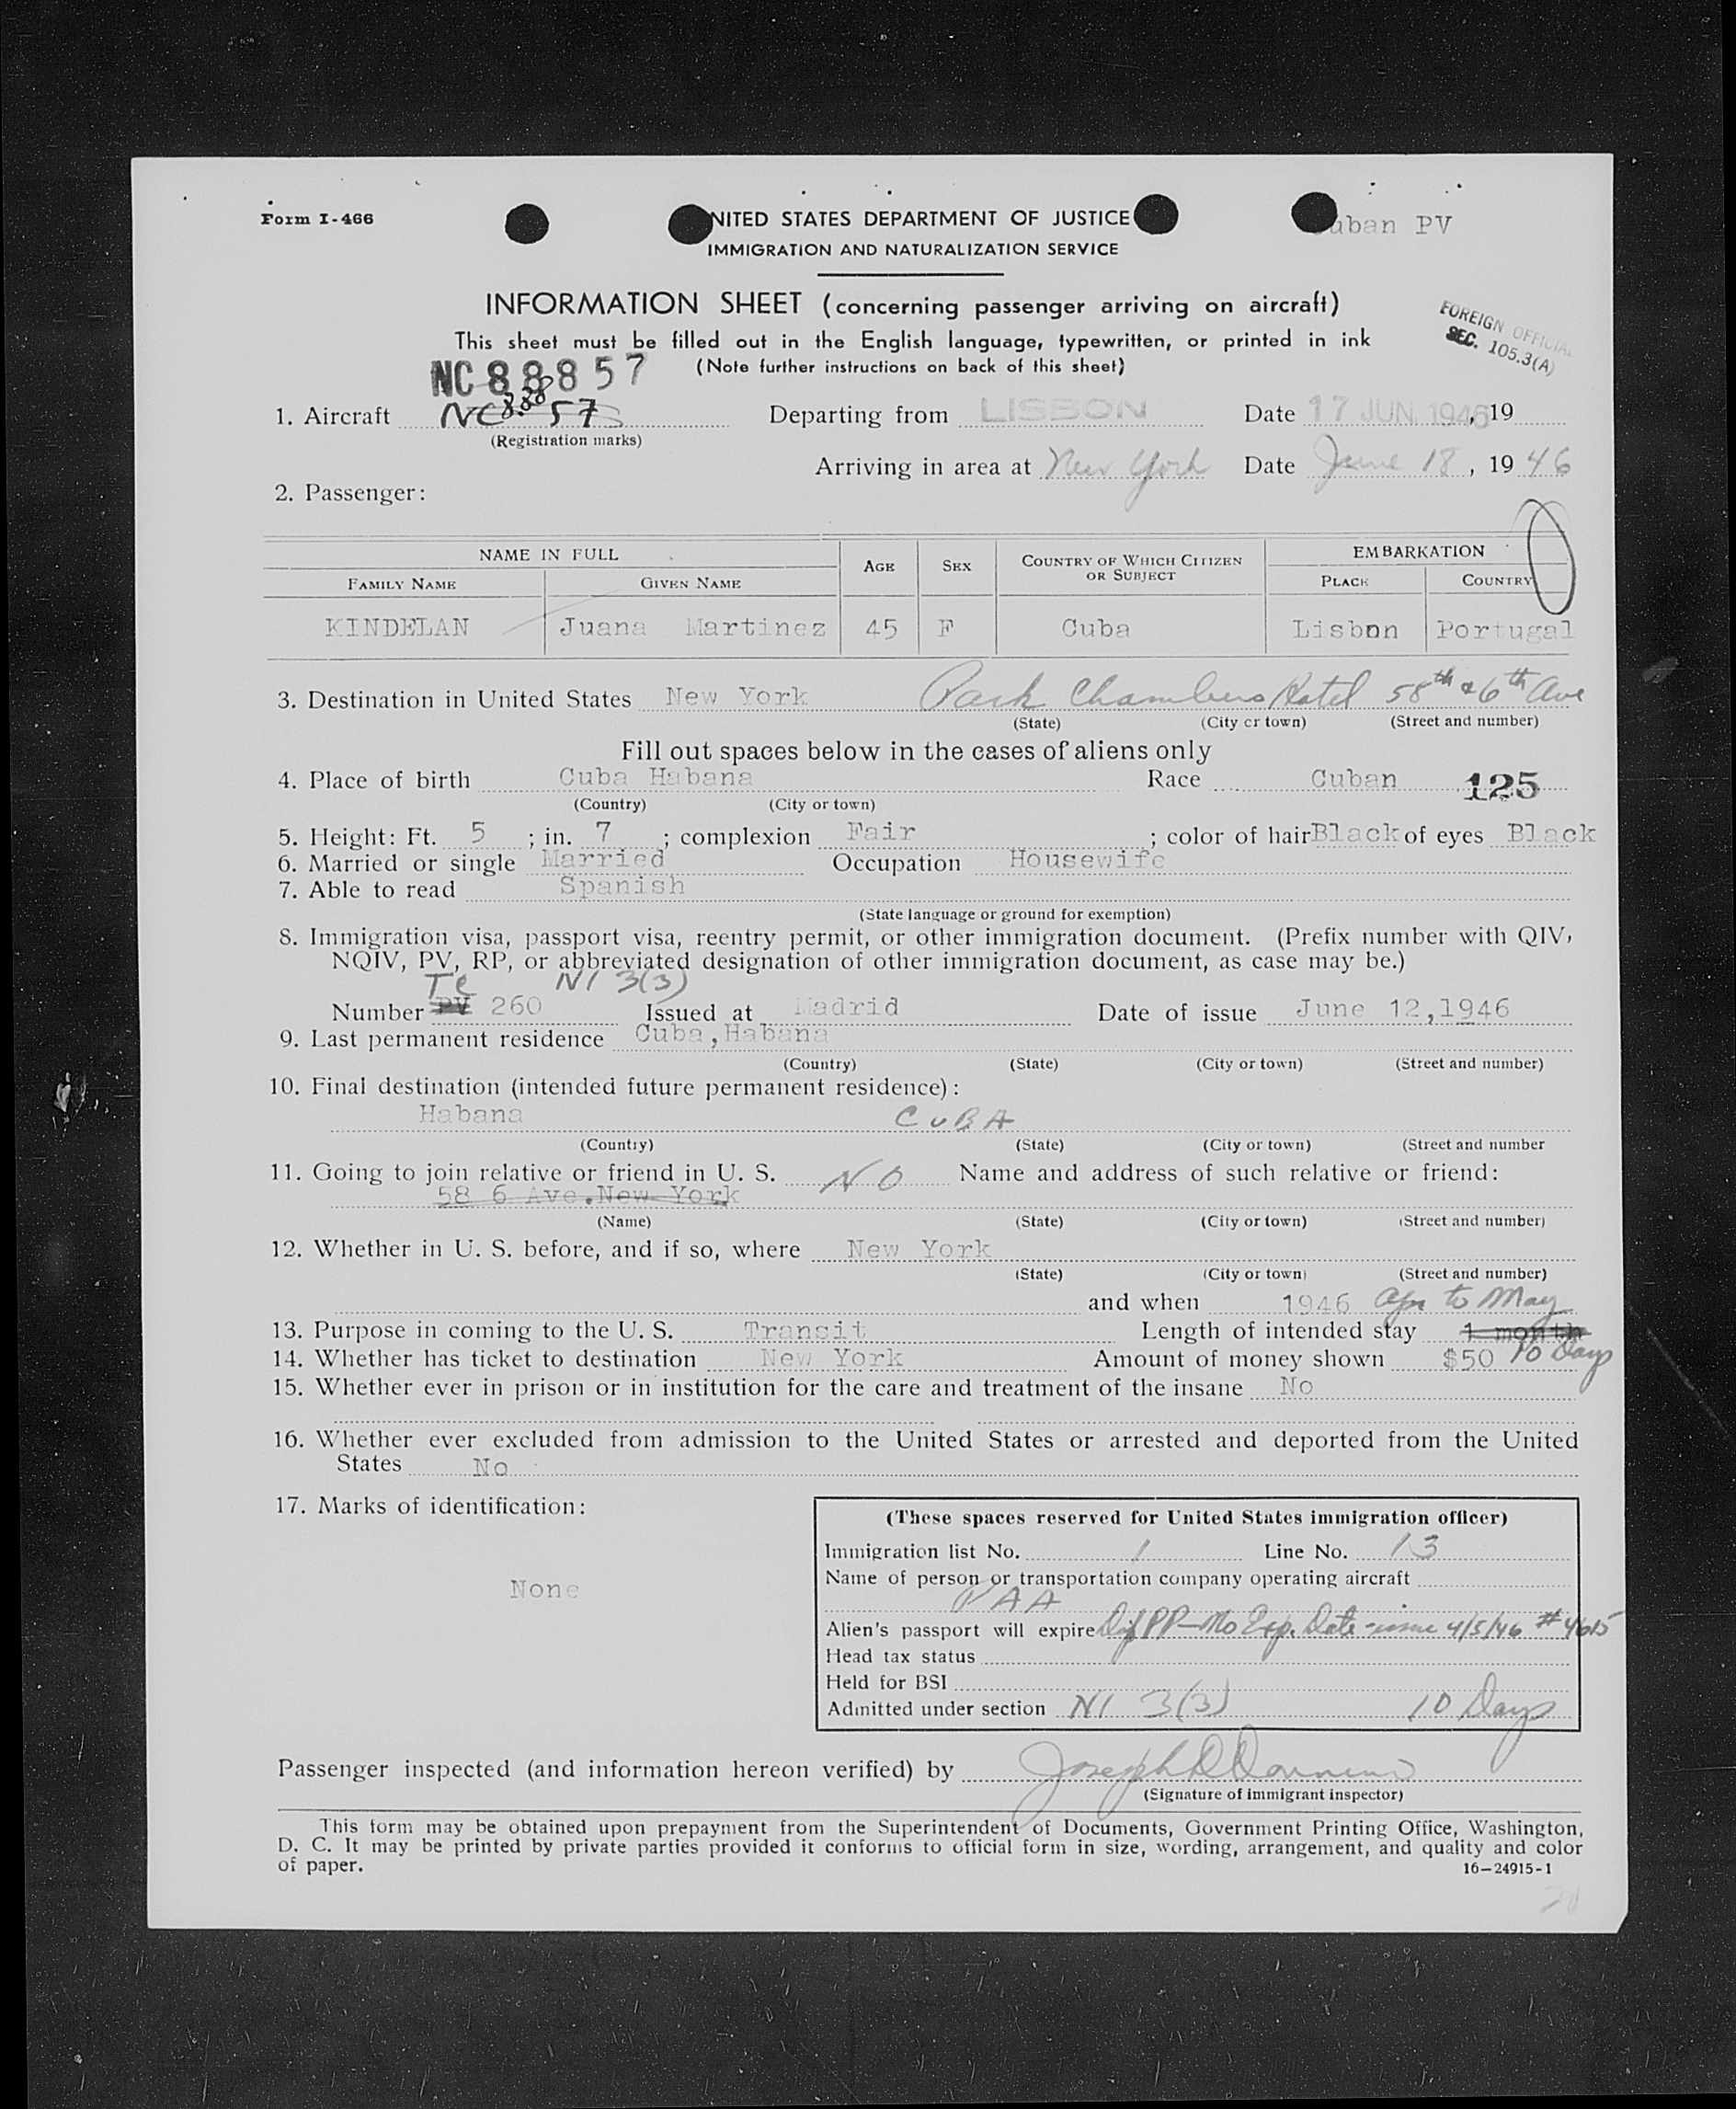 Form I-466
NITED STATES DEPARTMENT OF JUSTICE
uban PV
IMMIGRATION AND NATURALIZATION SERVICE
INFORMATION SHEET (concerning passenger arriving on aircraft)
This sheet must be filled out in the English language, typewritten, or printed in ink
(Note further instructions on back of this sheet)
FOREIGN OFFICIAL
SEC. 105.3(A)
NC 88857
1. Aircraft NC 88857 Departing from LISBON Date 17 JUN 1946, 19
(Registration marks)
Arriving in area at New York Date June 18, 19 46
2. Passenger:
NAME IN FULL AGE SEX COUNTRY OF WHICH CITIZEN OR SUBJECT EMBARKATION
FAMILY NAME GIVEN NAME PLACE COUNTRY
KINDELAN Juana Martinez 45 F Cuba Lisbon Portugal
3. Destination in United States New York Park Chambers Hotel 58th & 6th Ave
(State) (City or town) (Street and number)
Fill out spaces below in the cases of aliens only
4. Place of birth Cuba Habana Race Cuban 125
(Country) (City or town)
5. Height: Ft. 5 ; in. 7 ; complexion Fair ; color of hair Black of eyes Black
6. Married or single Married Occupation Housewife
7. Able to read Spanish
(State language or ground for exemption)
8. Immigration visa, passport visa, reentry permit, or other immigration document. (Prefix number with QIV,
NQIV, PV, RP, or abbreviated designation of other immigration document, as case may be.)
TC NI 3(3)
Number PV 260 Issued at Madrid Date of issue June 12,1946
9. Last permanent residence Cuba,Habana
(Country) (State) (City or town) (Street and number)
10. Final destination (intended future permanent residence):
Habana CUBA
(Country) (State) (City or town) (Street and number
11. Going to join relative or friend in U. S. NO Name and address of such relative or friend:
58 6 Ave.New York
(Name) (State) (City or town) (Street and number)
12. Whether in U. S. before, and if so, where New York
(State) (City or town) (Street and number)
and when 1946 Apr to May
13. Purpose in coming to the U. S. Transit Length of intended stay 1 month
14. Whether has ticket to destination New York Amount of money shown $50 10 Days
15. Whether ever in prison or in institution for the care and treatment of the insane No
16. Whether ever excluded from admission to the United States or arrested and deported from the United
States No
17. Marks of identification:
None
(These spaces reserved for United States immigration officer)
Immigration list No. 1 Line No. 13
Name of person or transportation company operating aircraft
PAA
Alien's passport will expire Dip PP-No Exp. Date issue 4/5/46 #4615
Head tax status
Held for BSI
Admitted under section NI 3(3) 10 Days
Passenger inspected (and information hereon verified) by Joseph D
(Signature of immigrant inspector)
This form may be obtained upon prepayment from the Superintendent of Documents, Government Printing Office, Washington,
D. C. It may be printed by private parties provided it conforms to official form in size, wording, arrangement, and quality and color
of paper.
16—24915-1